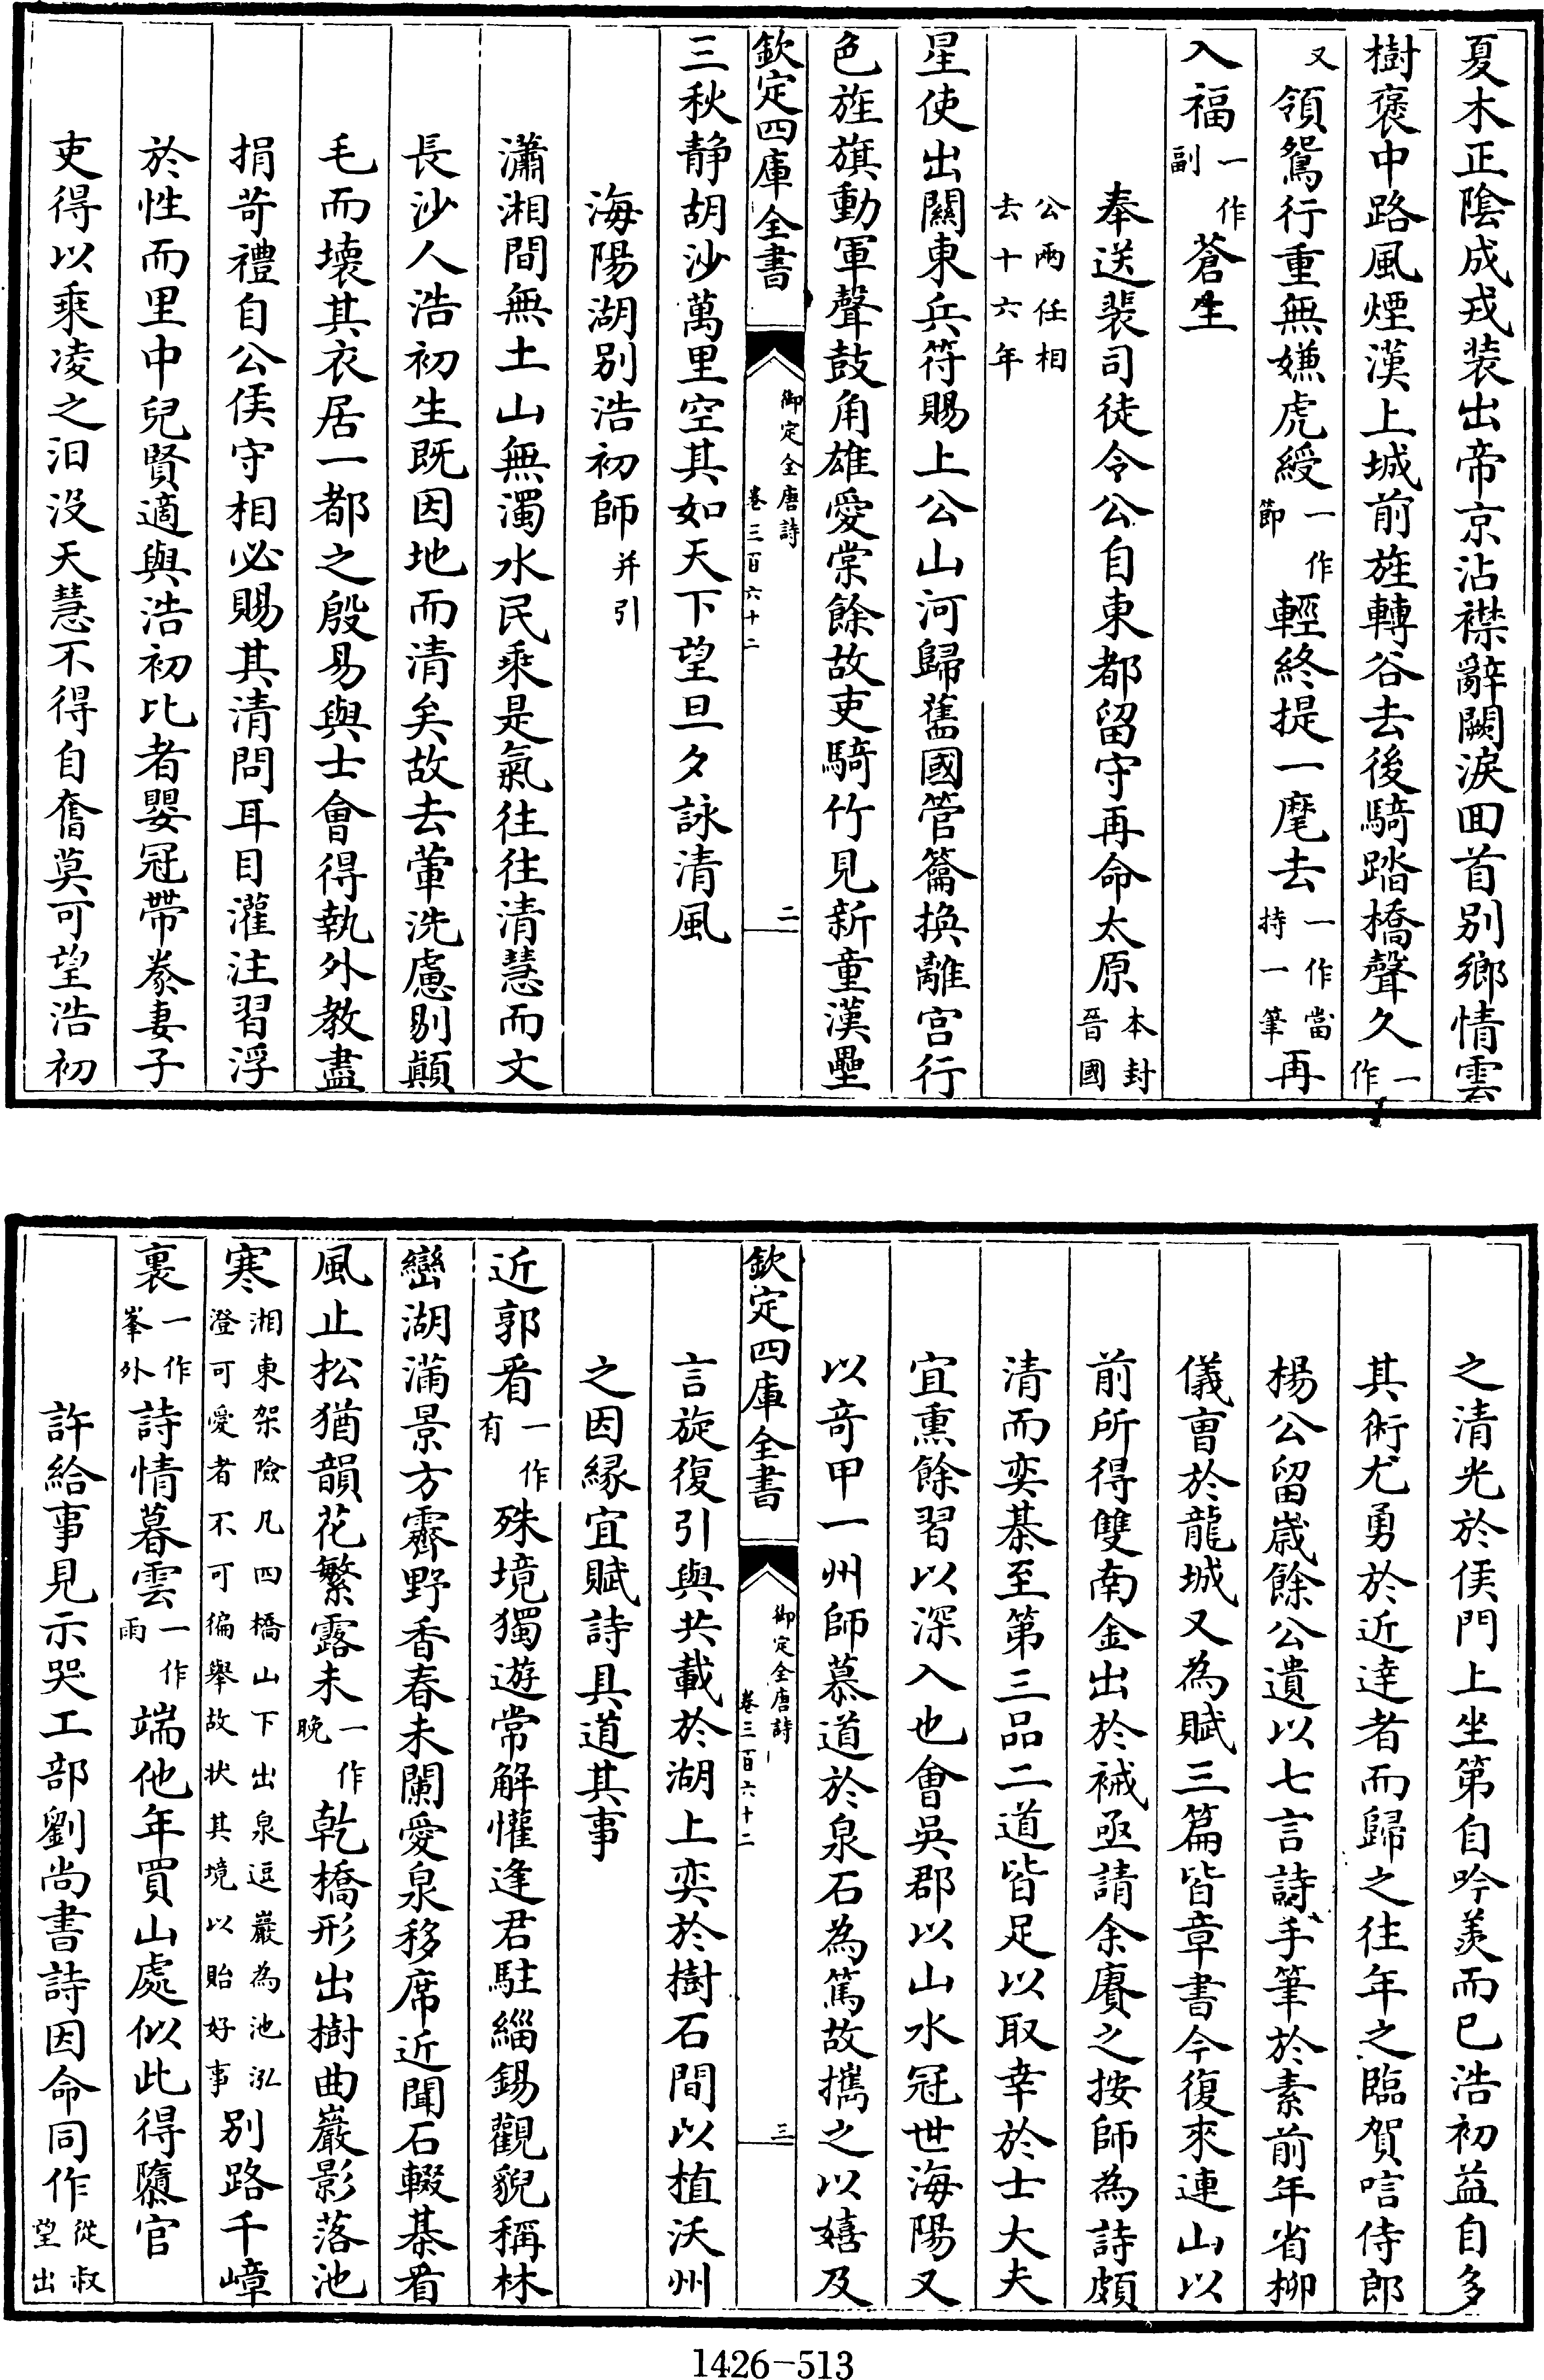 夏木正陰成戎装出帝京沾襟辭闕淚回首别鄉情雲
樹褒中路風煙漢上城前旌轉谷去後騎踏橋聲久一作
又領鴛行重無嫌虎綬一作節輕終提一麾去一作當持一筆再
入福一作副蒼生
奉送裴司徒令公自東都留守再命太原本封晉國
公兩任相去十六年
星使出關東兵符賜上公山河歸舊國管籥換離宫行
色旌旗動軍聲鼓角雄愛棠餘故吏騎竹見新童漢壘
欽定四庫全書
御定全唐詩
卷三百六十二
二
三秋静胡沙萬里空其如天下望旦夕詠清風
海陽湖别浩初師并引
瀟湘間無土山無濁水民乘是氣往往清慧而文
長沙人浩初生既因地而清矣故去葷洗慮剔顛
毛而壊其衣居一都之殷易與士會得執外教盡
捐苛禮自公侯守相必賜其清問耳目灌注習浮
於性而里中兒賢適與浩初比者嬰冠帶豢妻子
吏得以乘凌之汩没天慧不得自奮莫可望浩初
之清光於侯門上坐第自吟羨而已浩初益自多
其術尤勇於近逹者而歸之往年之臨賀唁侍郎
楊公留歲餘公遺以七言詩手筆於素前年省柳
儀曹於龍城又為賦三篇皆章書今復來連山以
前所得雙南金出於裓亟請余賡之按師為詩頗
清而奕棊至第三品二道皆足以取幸於士大夫
宜熏餘習以深入也會吳郡以山水冠世海陽又
以竒甲一州師慕道於泉石為篤故攜之以嬉及
欽定四庫全書
御定全唐詩
卷三百六十二
三
言旋復引與共載於湖上奕於樹石間以植沃州
之因縁宜賦詩具道其事
近郭看一作有殊境獨遊常解懽逢君駐緇錫觀貌稱林
巒湖滿景方霽野香春未闌愛泉移席近聞石輟棊看
風止松猶韻花繁露未一作晚乾橋形出樹曲巖影落池
寒湘東架險凡四橋山下出泉逗巖為池泓澄可愛者不可徧舉故状其境以貽好事别路千嶂
裏一作峯外詩情暮雲一作雨端他年買山處似此得隳官
許給事見示哭工部劉尚書詩因命同作從叔望出
1426-513